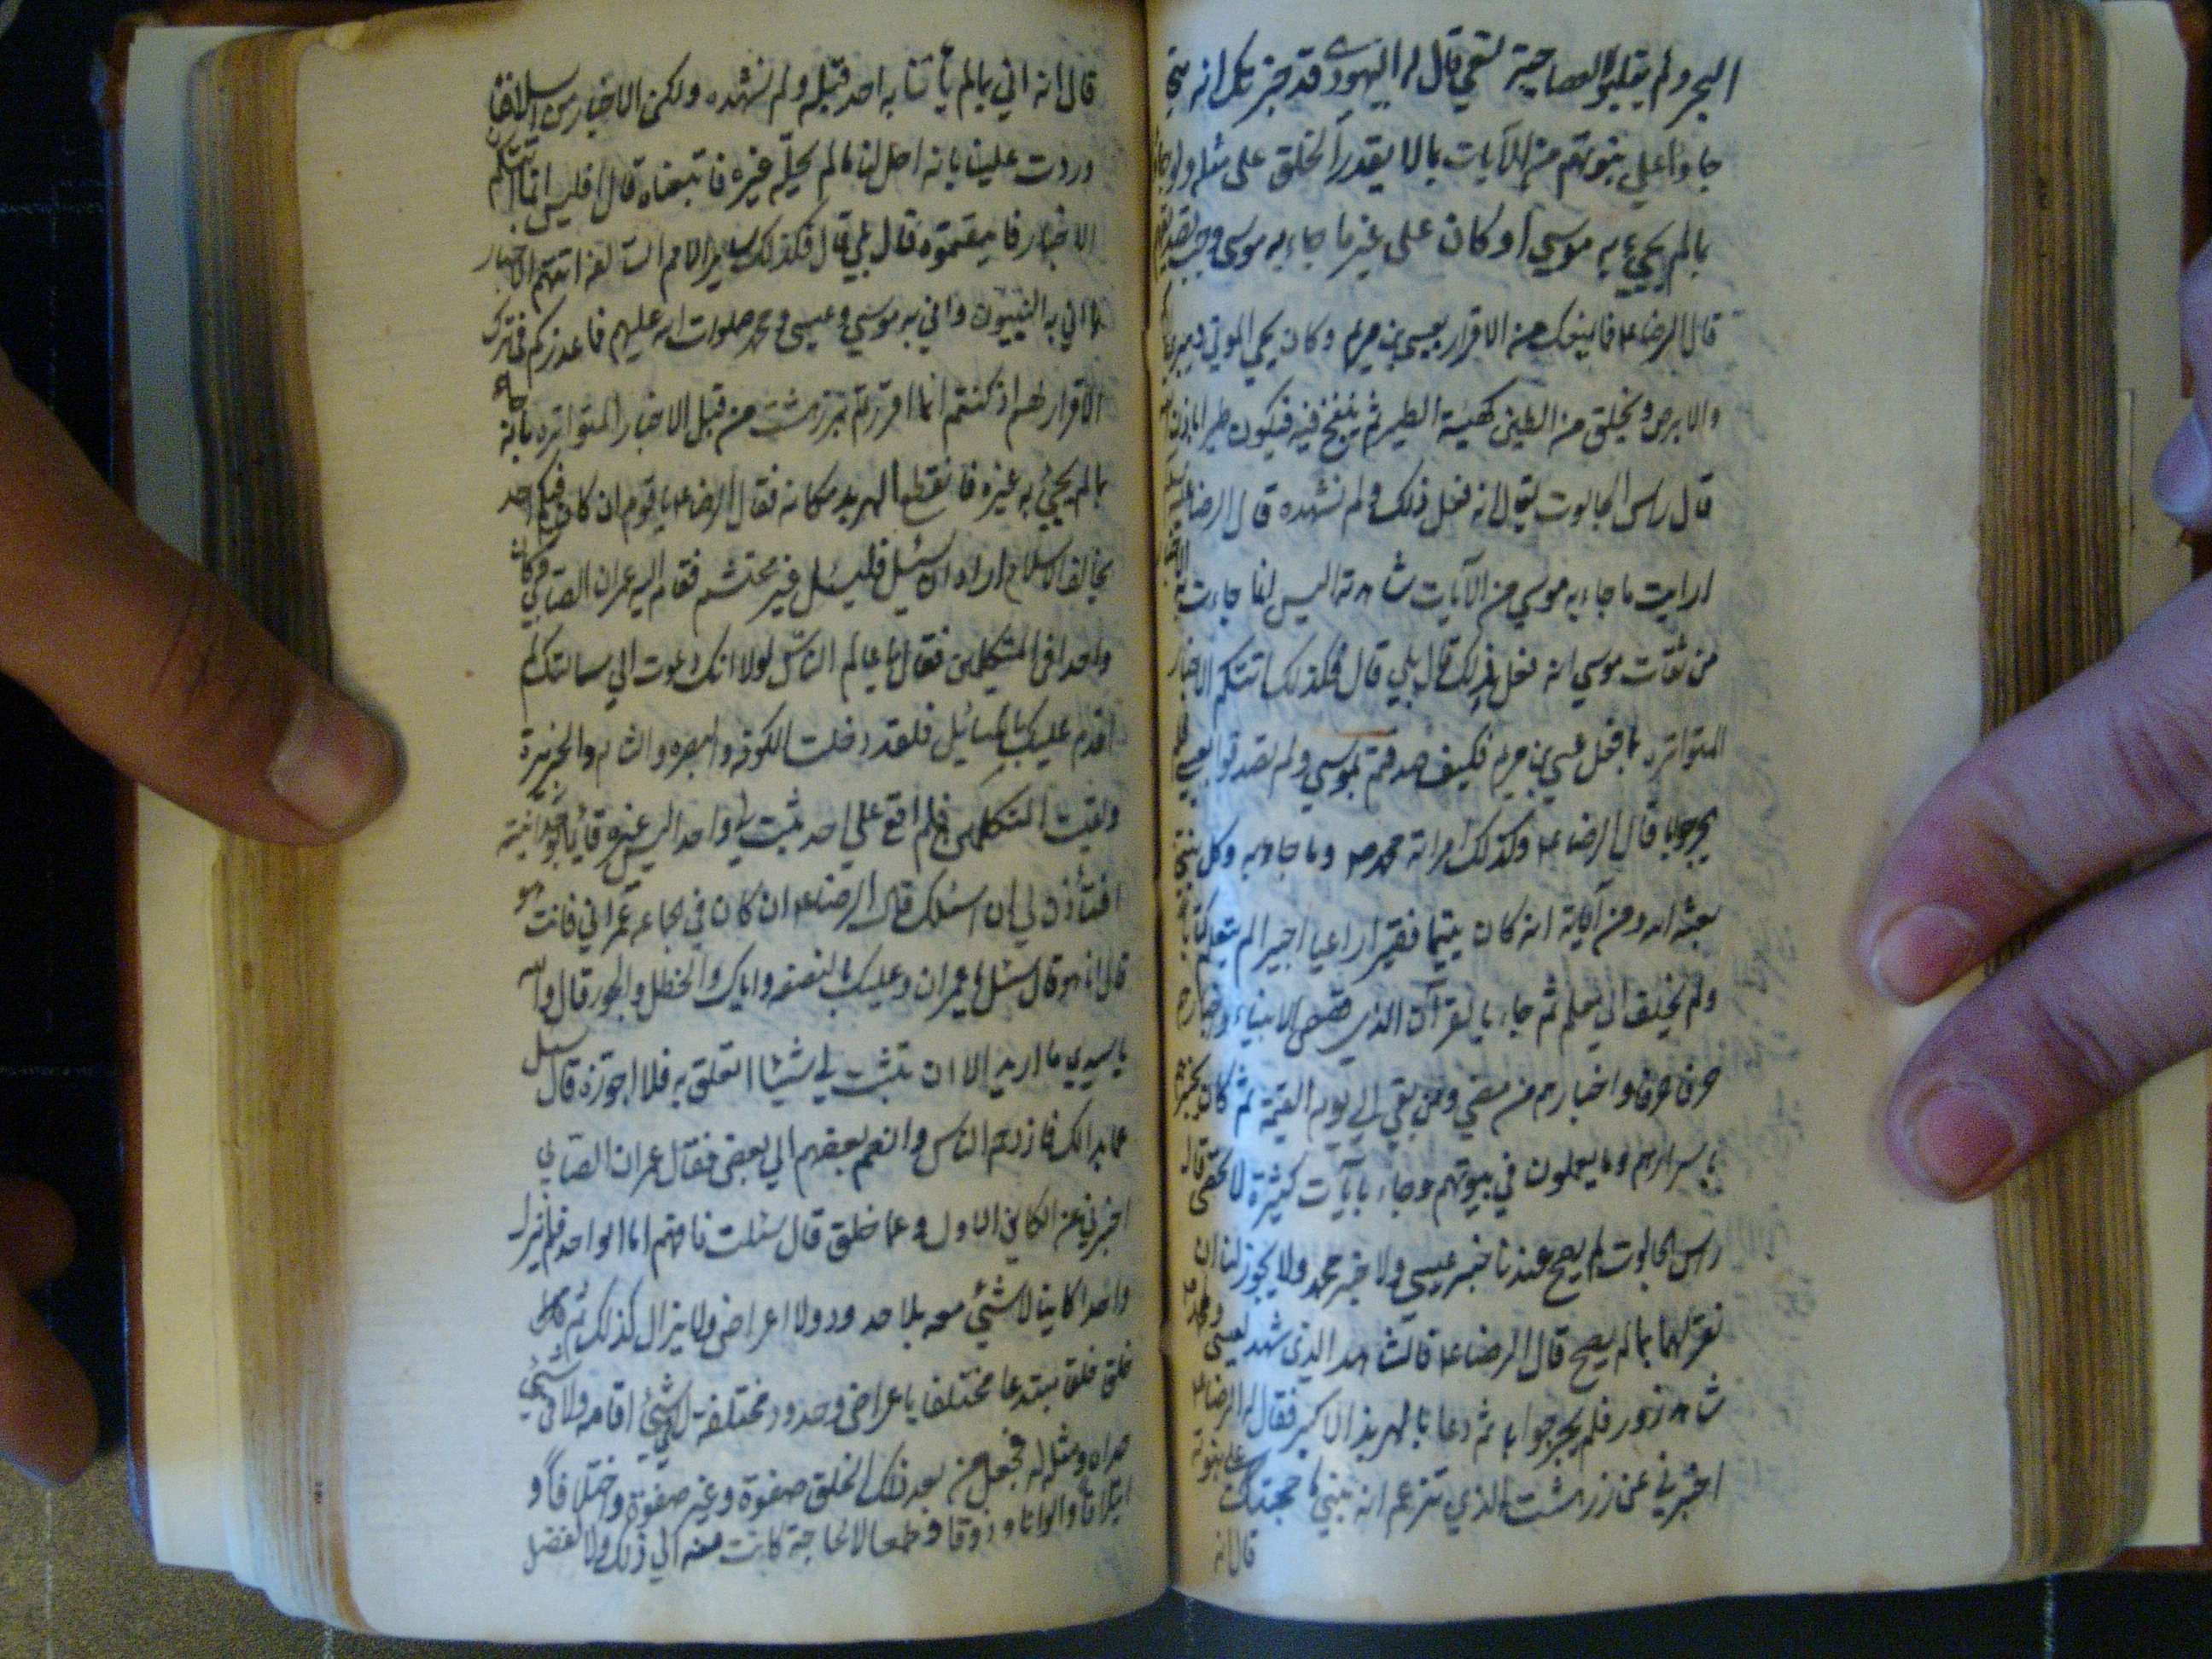 البحر ولم يقلبوا العصا حية تسعى قال له اليهودي قد خبرتك انه متى
جاؤا على نبوتهم من الآيات بما لا يقدر الخلق على مثله ولو جاؤا
بما لم يجيء به موسى او كان على غير ما جاء به موسى وجب تصديقهم
قال الرضا ع فما يمنعك من الاقرار بعيسى بن مريم وكان يحي الموتى ويبرئ
والابرص ويخلق من الطين كهيئة الطير ثم ينفخ فيه فيكون طيرا باذن
قال راس الجالوت يقال انه فعل ذلك ولم نشهده قال الرضا ع
ارايت ما جاء به موسى من الآيات شاهدته اليس انما جاءت الاخبار
من ثقات موسى انه فعل ذلك قال بلى قال فكذلك اتتكم الاخبار
المتواترة بما فعل عيسى بن مريم فكيف صدقتم بموسى ولم تصدقوا بعيسى فلم
يحر جوابا قال الرضا ع وكذلك امر محمد ص وما جاء به وكل نبي
بعثه الله ومن آياته انه كان يتيما فقيرا راعيا اجيرا لم يتعلم كتابا
ولم يختلف الى معلم ثم جاء بالقرآن الذي قصص الانبياء واخبارهم
حرفا حرفا واخبار من مضى ومن بقي الى يوم القيمة ثم كان يخبرهم
باسرارهم وما يعملون في بيوتهم وجاء بآيات كثيرة لا تحصى قال
راس الجالوت لم يصح عندنا خبر عيسى ولا خبر محمد ولا يجوز لنا ان
نقر لهما بما لم يصح قال الرضا ع فالشاهد الذي شهد لعيسى ومحمد
شاهد زور فلم يحر جوابا ثم دعا بالهربذ الاكبر فقال له الرضا ع
اخبرني عن زردهشت الذي تزعم انه نبي ما حجتك على نبوته
قال انه
قال انه اتى بما لم يأتنا به احد قبله ولم نشهده ولكن الاخبار من اسلافنا
وردت علينا بانه احل لنا ما لم يحله غيره فاتبعناه قال افليس انما اتتكم
الاخبار فاتبعتموه قال بلى قال فكذلك سائر الامم السالفة اتتهم الاخبار
بما اتى به النبيون واتى به موسى وعيسى ومحمد صلوات الله عليهم فما عذركم في ترك
الاقرار لهم اذ كنتم انما اقررتم بزردهشت من قبل الاخبار المتواترة بانه جاء
بما لم يجئ به غيره فانقطع الهربد مكانه فقال الرضا ع يا قوم ان كان فيكم احد
يخالف الاسلام اراد ان يسئل فليسئل غير محتشم فقام اليه عمران الصابي وكان
واحدا في المتكلمين فقال يا عالم الناس لولا انك دعوت الى مسالتك لم
اقدم عليك بالمسائل فلقد دخلت الكوفة والبصرة والشام والجزيرة
ولقيت المتكلمين فلم اقع على احد يثبت لي واحدا ليس غيره قائما بوحدانيته
افتأذن لي ان اسئلك قال الرضا ع ان كان في الجماعة عمران فانت هو
قال انا هو قال سئل يا عمران وعليك بالنصفة واياك والخطل والجور قال والله
يا سيدي ما اريد الا ان تثبت لي شيئا اتعلق به فلا اجوزه قال سل
عما بدا لك فازدحم الناس وانضم بعضهم الى بعض فقال عمران الصابي
اخبرني عن الكائن الاول وعما خلق قال سئلت فافهم اما الواحد فلم يزل
واحدا كائنا لا شيئ معه بلا حدود ولا اعراض ولا يزال كذلك ثم
خلق خلقا مبتدعا مختلفا باعراض وحدود مختلفة لا في شيئ اقامه ولا في شيئ
حداه ومثله له فجعل من بعد ذلك الخلق صفوة وغير صفوة واختلافا و
ايتلافا والوانا وذوقا وطعما لا لحاجة كانت منه الى ذلك ولا لفضل